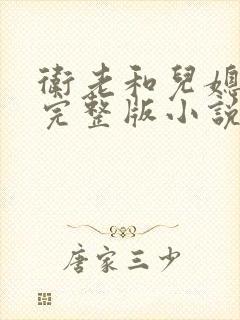 衛老和兒媳
完整版小說
唐家三少